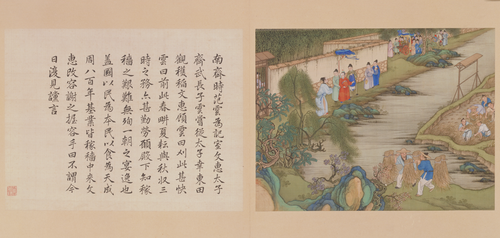 南齋時范雲為記室文惠太子
齋武長子雲嘗從太子幸東田
觀穫稻文惠顧雲曰刈此甚快
雲曰前此春畊夏耘與秋收三
時之務亦甚勤勞願殿下知稼
穡之艱難無徇一朝之宴逸也
蓋國以民為本民以食為天成
周八百年基業皆稼穡中来文
惠改容謝之握客手曰不謂今
日復見讜言